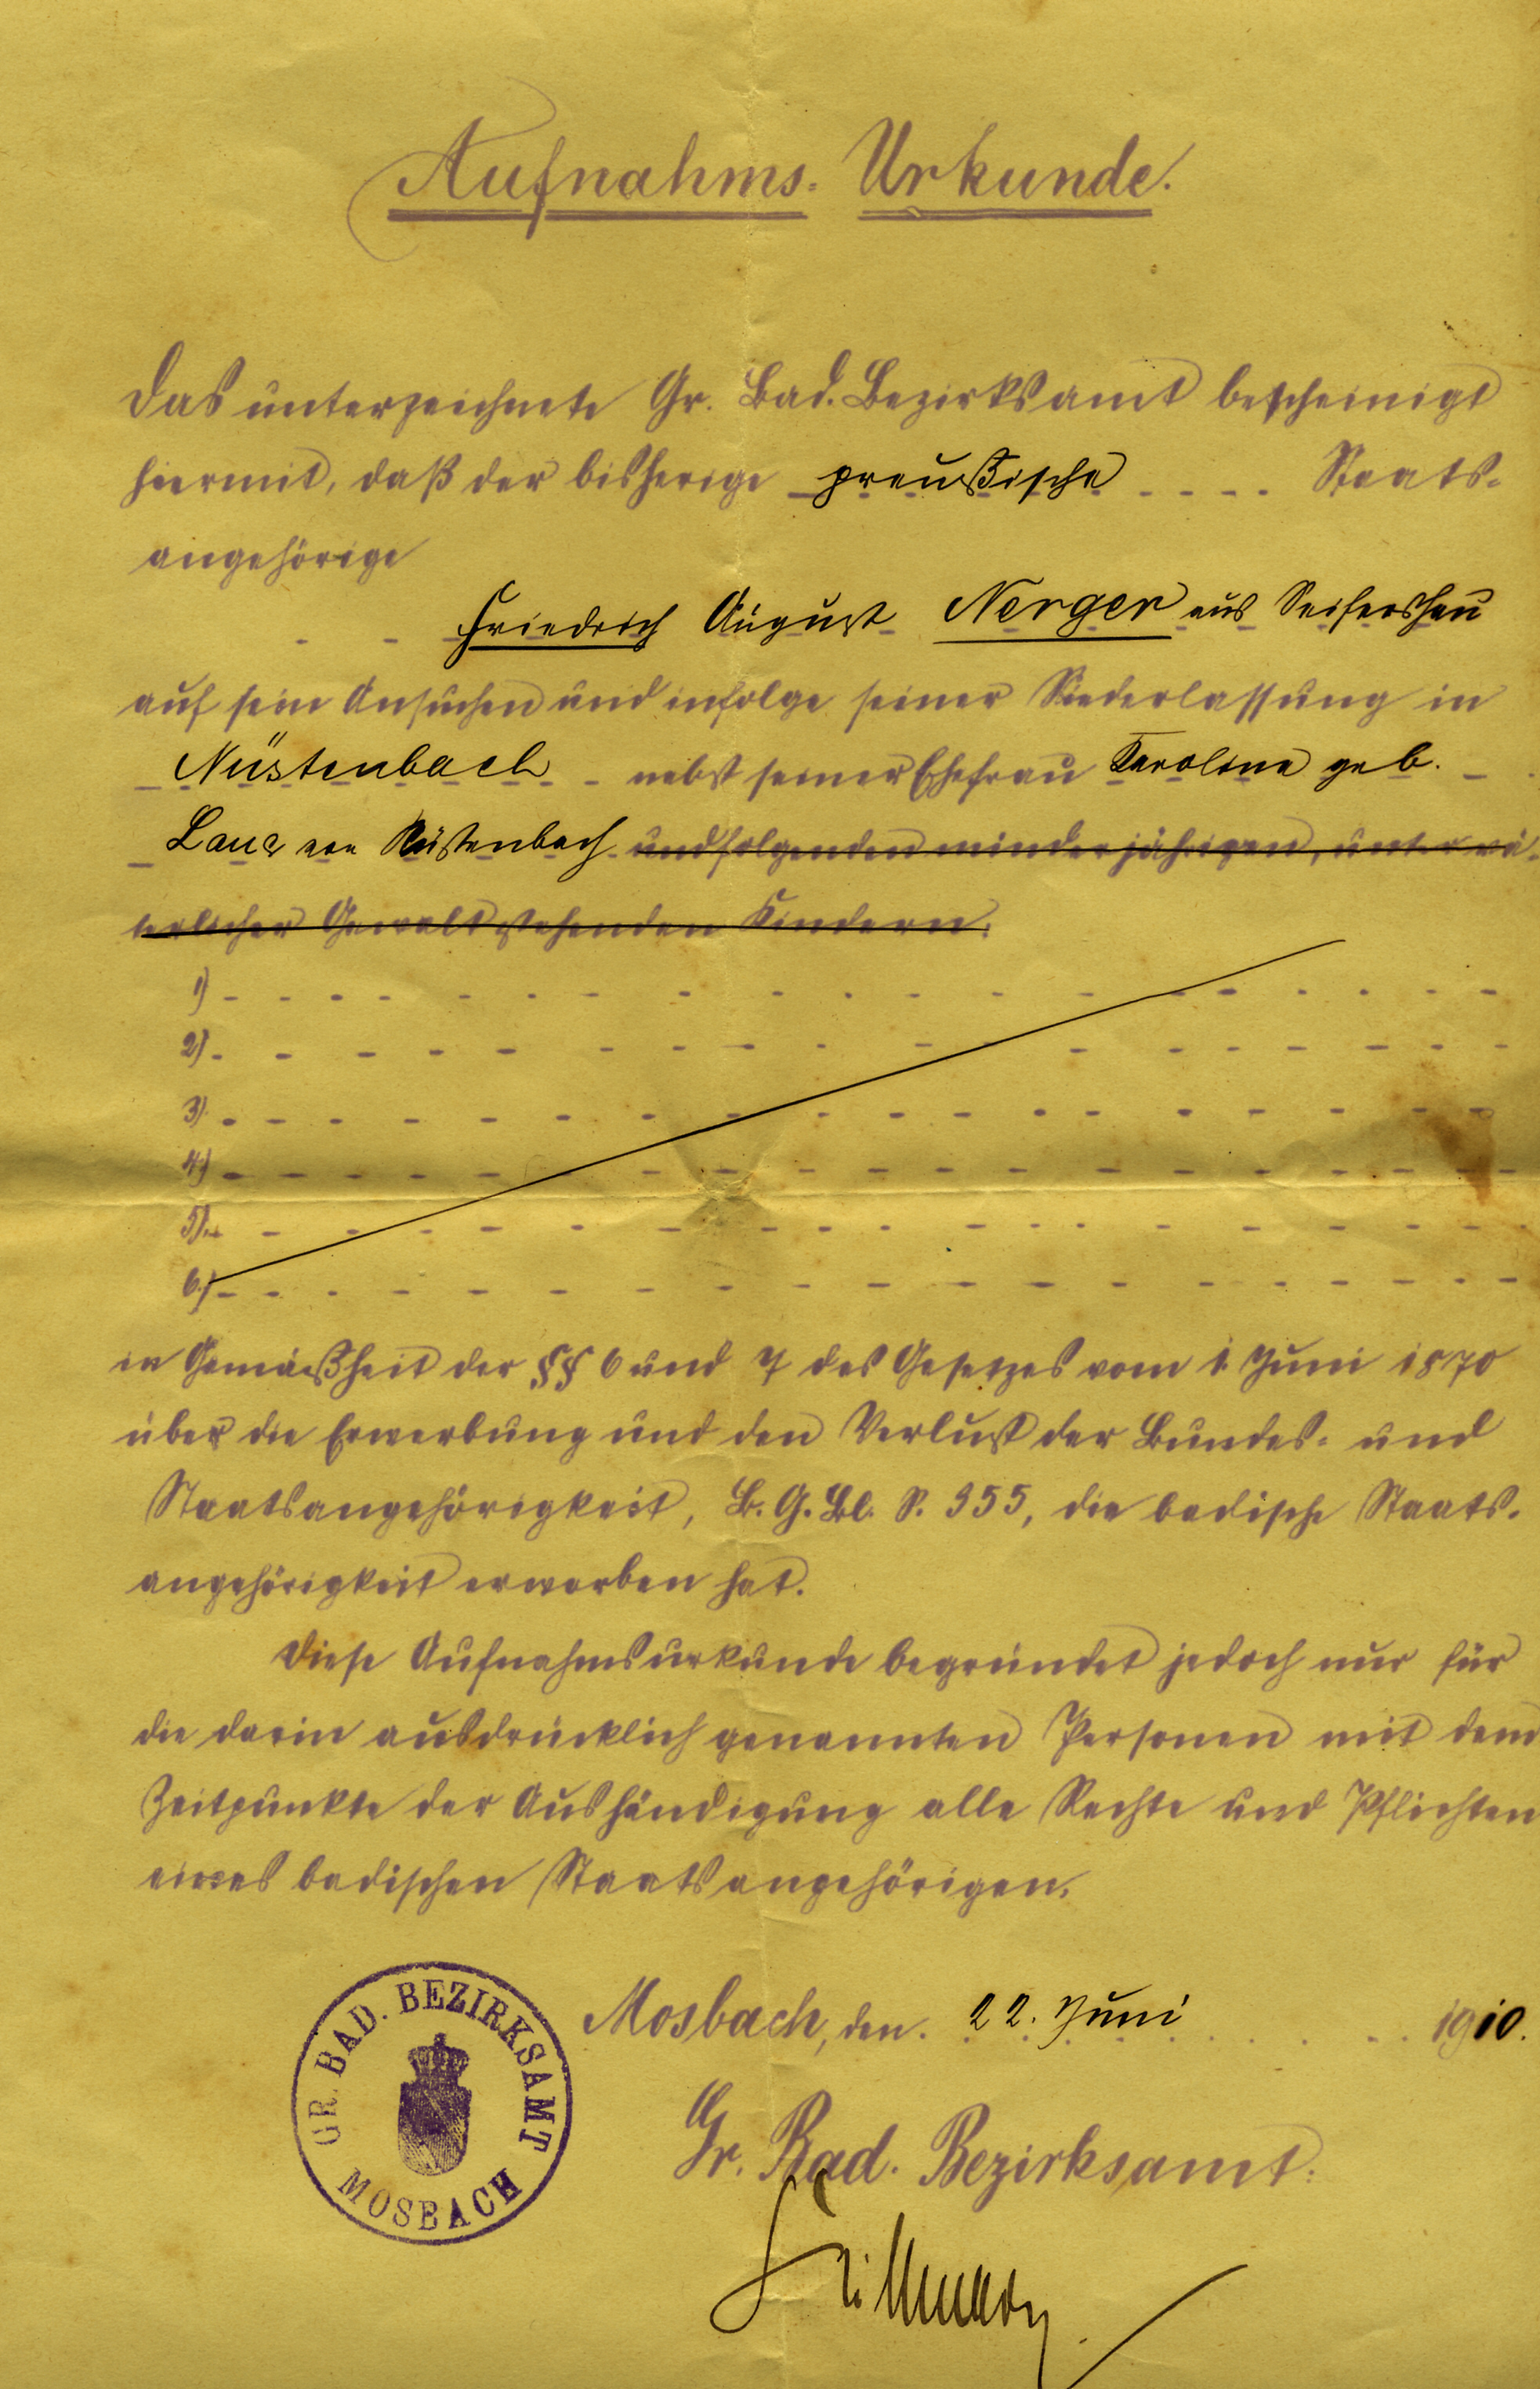 Aufnahms- Urkunde.
Das unterzeichnete Gr. Bad. Bezirksamt bescheinigt
hiermit, daß der bisherige preußische Staats-
angehörige
Friedrich August Nerger aus Seifershau
auf sein Ansuchen und infolge seiner Niederlassung in
Nüstenbach nebst seiner Ehefrau Karoline geb.
von Nüstenbach und folgenden minderjährigen, unter vä-
terlicher Gewalt stehenden Kindern:
1)
2)
3)
4)
5)
6.)
in Gemäßheit der §§ 6 und 7 des Gesetzes vom 1. Juni 1870
über die Erwerbung und den Verlust der Bundes- und
Staatsangehörigkeit, B. G. Bl. S. 355, die badische Staats-
angehörigkeit erworben hat.
Diese Aufnahmsurkunde begründet jedoch nur für
die darin ausdrücklich genannten Personen mit dem
Zeitpunkte der Aushändigung alle Rechte und Pflichten
eines badischen Staatsangehörigen.
Mosbach, den 22. Juni 1910.
Gr. Bad. Bezirksamt:
GR. BAD. BEZIRKSAMT
MOSBACH